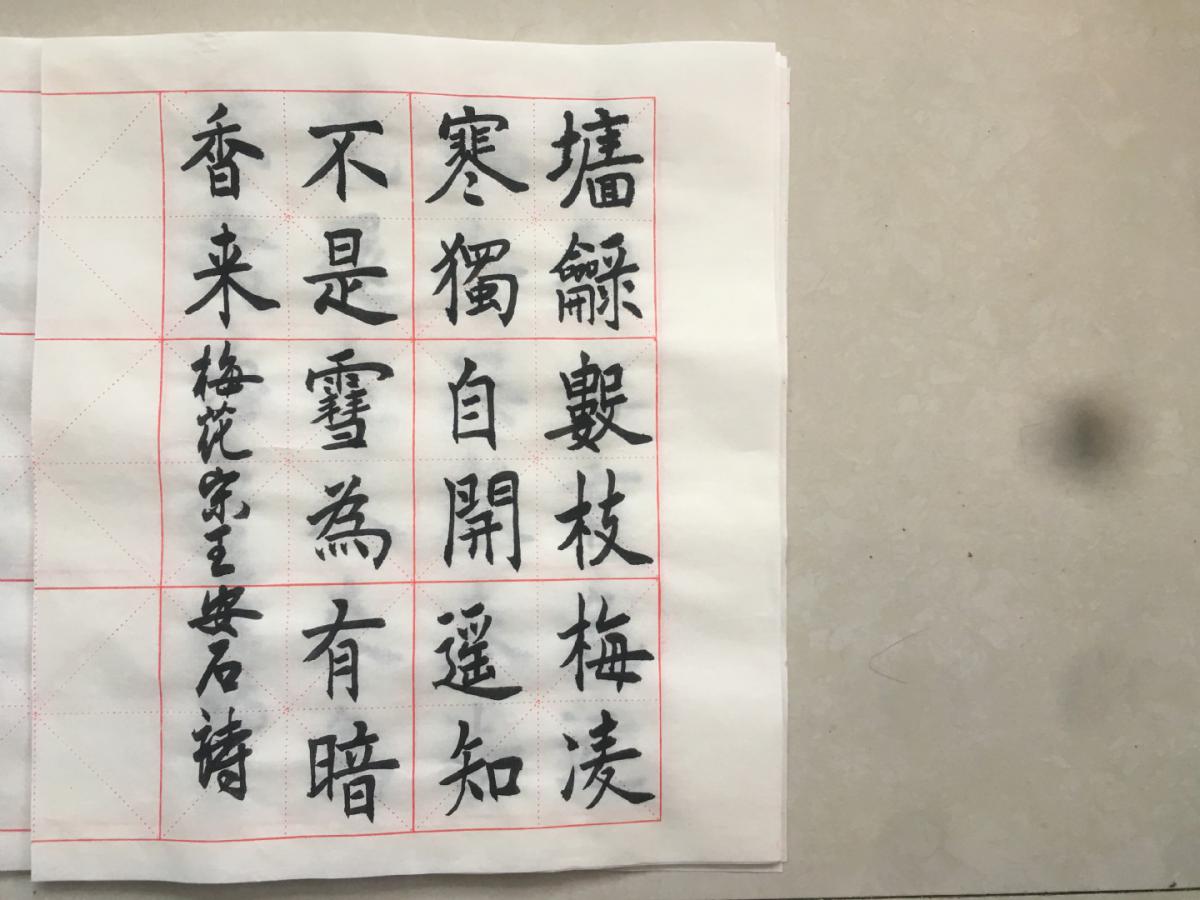 墻龣數枝梅凌
寒獨自開遥知
不是雪為有暗
香来梅花宋王安石詩